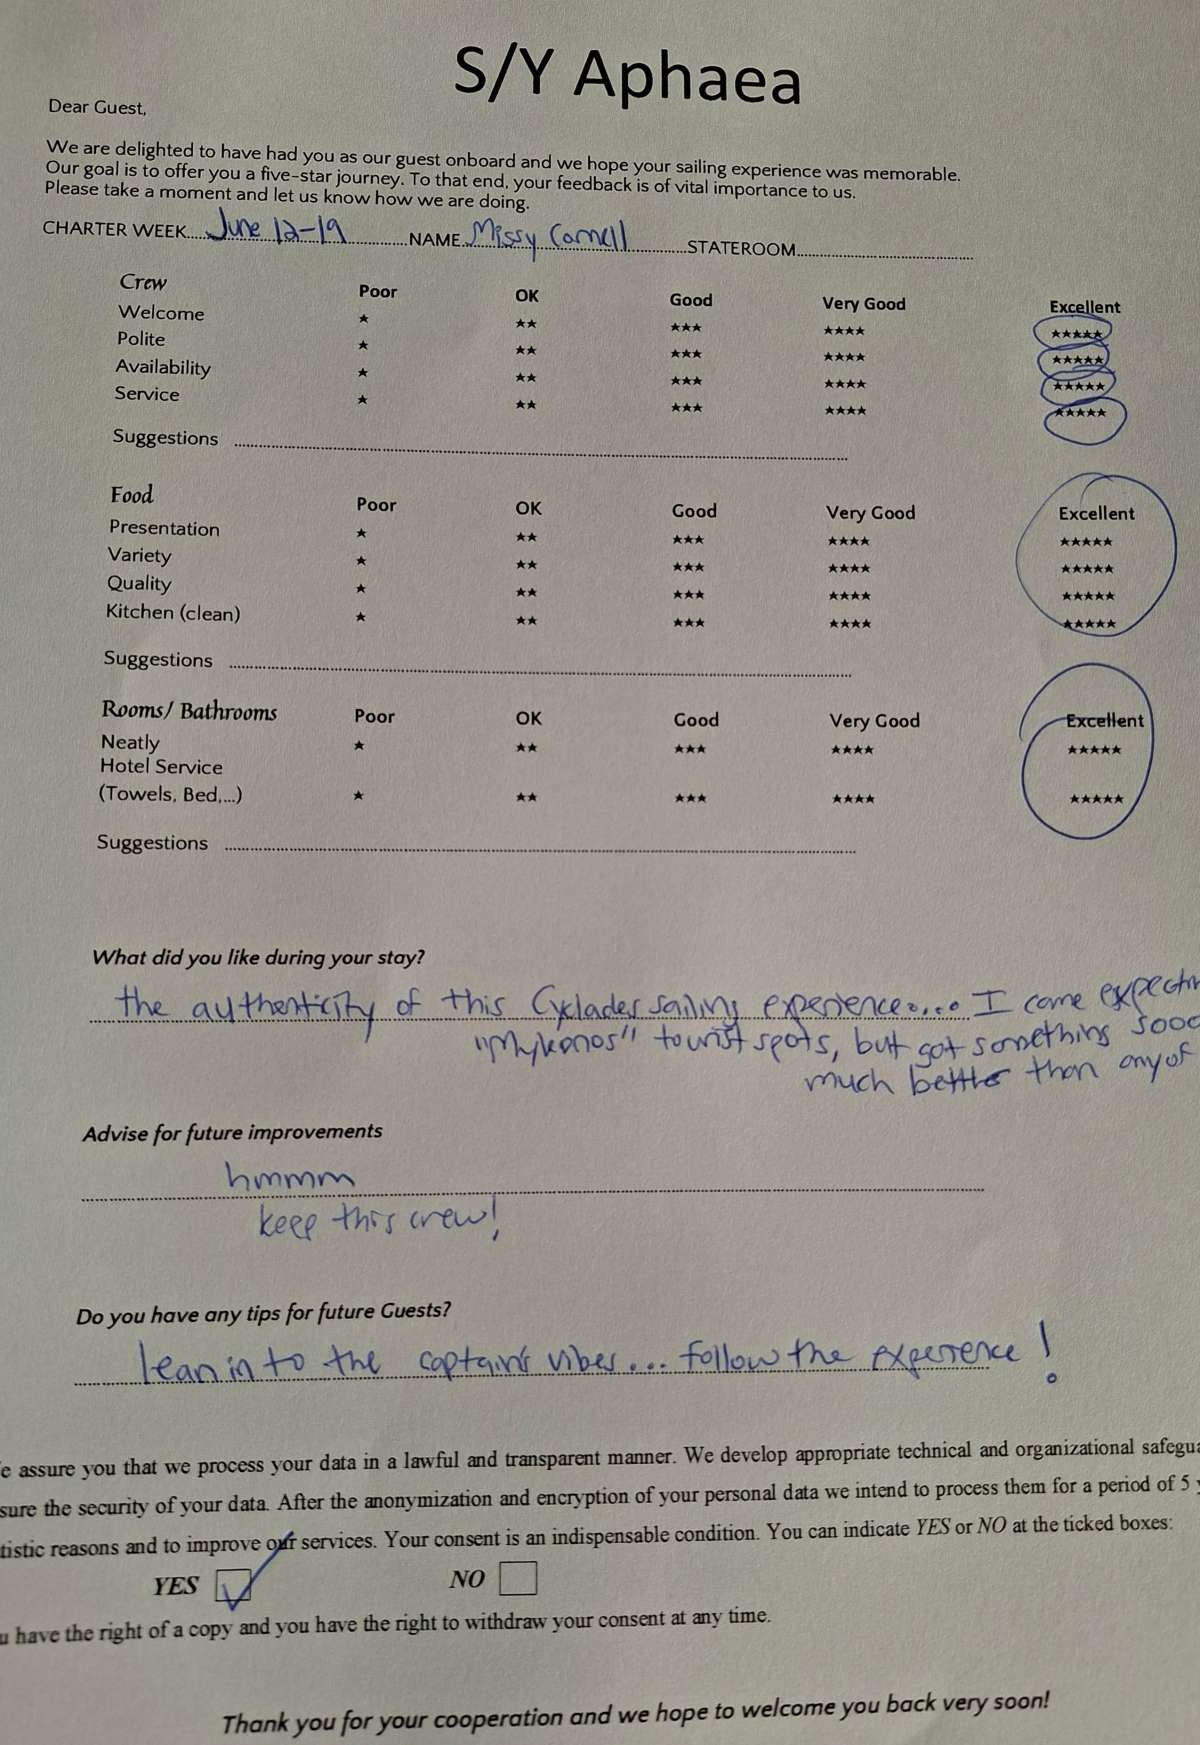 S/Y Aphaea
Dear Guest,
We are delighted to have had you as our guest onboard and we hope your sailing experience was memorable.
Our goal is to offer you a five-star journey. To that end, your feedback is of vital importance to us.
Please take a moment and let us know how we are doing.
CHARTER WEEK June 12-19 NAME Missy Cornell STATEROOM
Crew Poor OK Good Very Good Excellent
Welcome ★ ★★ ★★★ ★★★★ ★★★★★
Polite ★ ★★ ★★★ ★★★★ ★★★★★
Availability ★ ★★ ★★★ ★★★★ ★★★★★
Service ★ ★★ ★★★ ★★★★ ★★★★★
Suggestions
Food Poor OK Good Very Good Excellent
Presentation ★ ★★ ★★★ ★★★★ ★★★★★
Variety ★ ★★ ★★★ ★★★★ ★★★★★
Quality ★ ★★ ★★★ ★★★★ ★★★★★
Kitchen (clean) ★ ★★ ★★★ ★★★★ ★★★★★
Suggestions
Rooms/ Bathrooms Poor OK Good Very Good Excellent
Neatly ★ ★★ ★★★ ★★★★ ★★★★★
Hotel Service
(Towels, Bed,...) ★ ★★ ★★★ ★★★★ ★★★★★
Suggestions
What did you like during your stay?
the authenticity of this Cyclades sailing experience.... I came expectin
"Mykonos" tourist spots, but got something sooo
much better than any of
Advise for future improvements
hmmmm
keep this crew!
Do you have any tips for future Guests?
lean in to the captain's vibes... follow the experience!
e assure you that we process your data in a lawful and transparent manner. We develop appropriate technical and organizational safegua
sure the security of your data. After the anonymization and encryption of your personal data we intend to process them for a period of 5 y
tistic reasons and to improve our services. Your consent is an indispensable condition. You can indicate YES or NO at the ticked boxes:
YES NO
u have the right of a copy and you have the right to withdraw your consent at any time.
Thank you for your cooperation and we hope to welcome you back very soon!